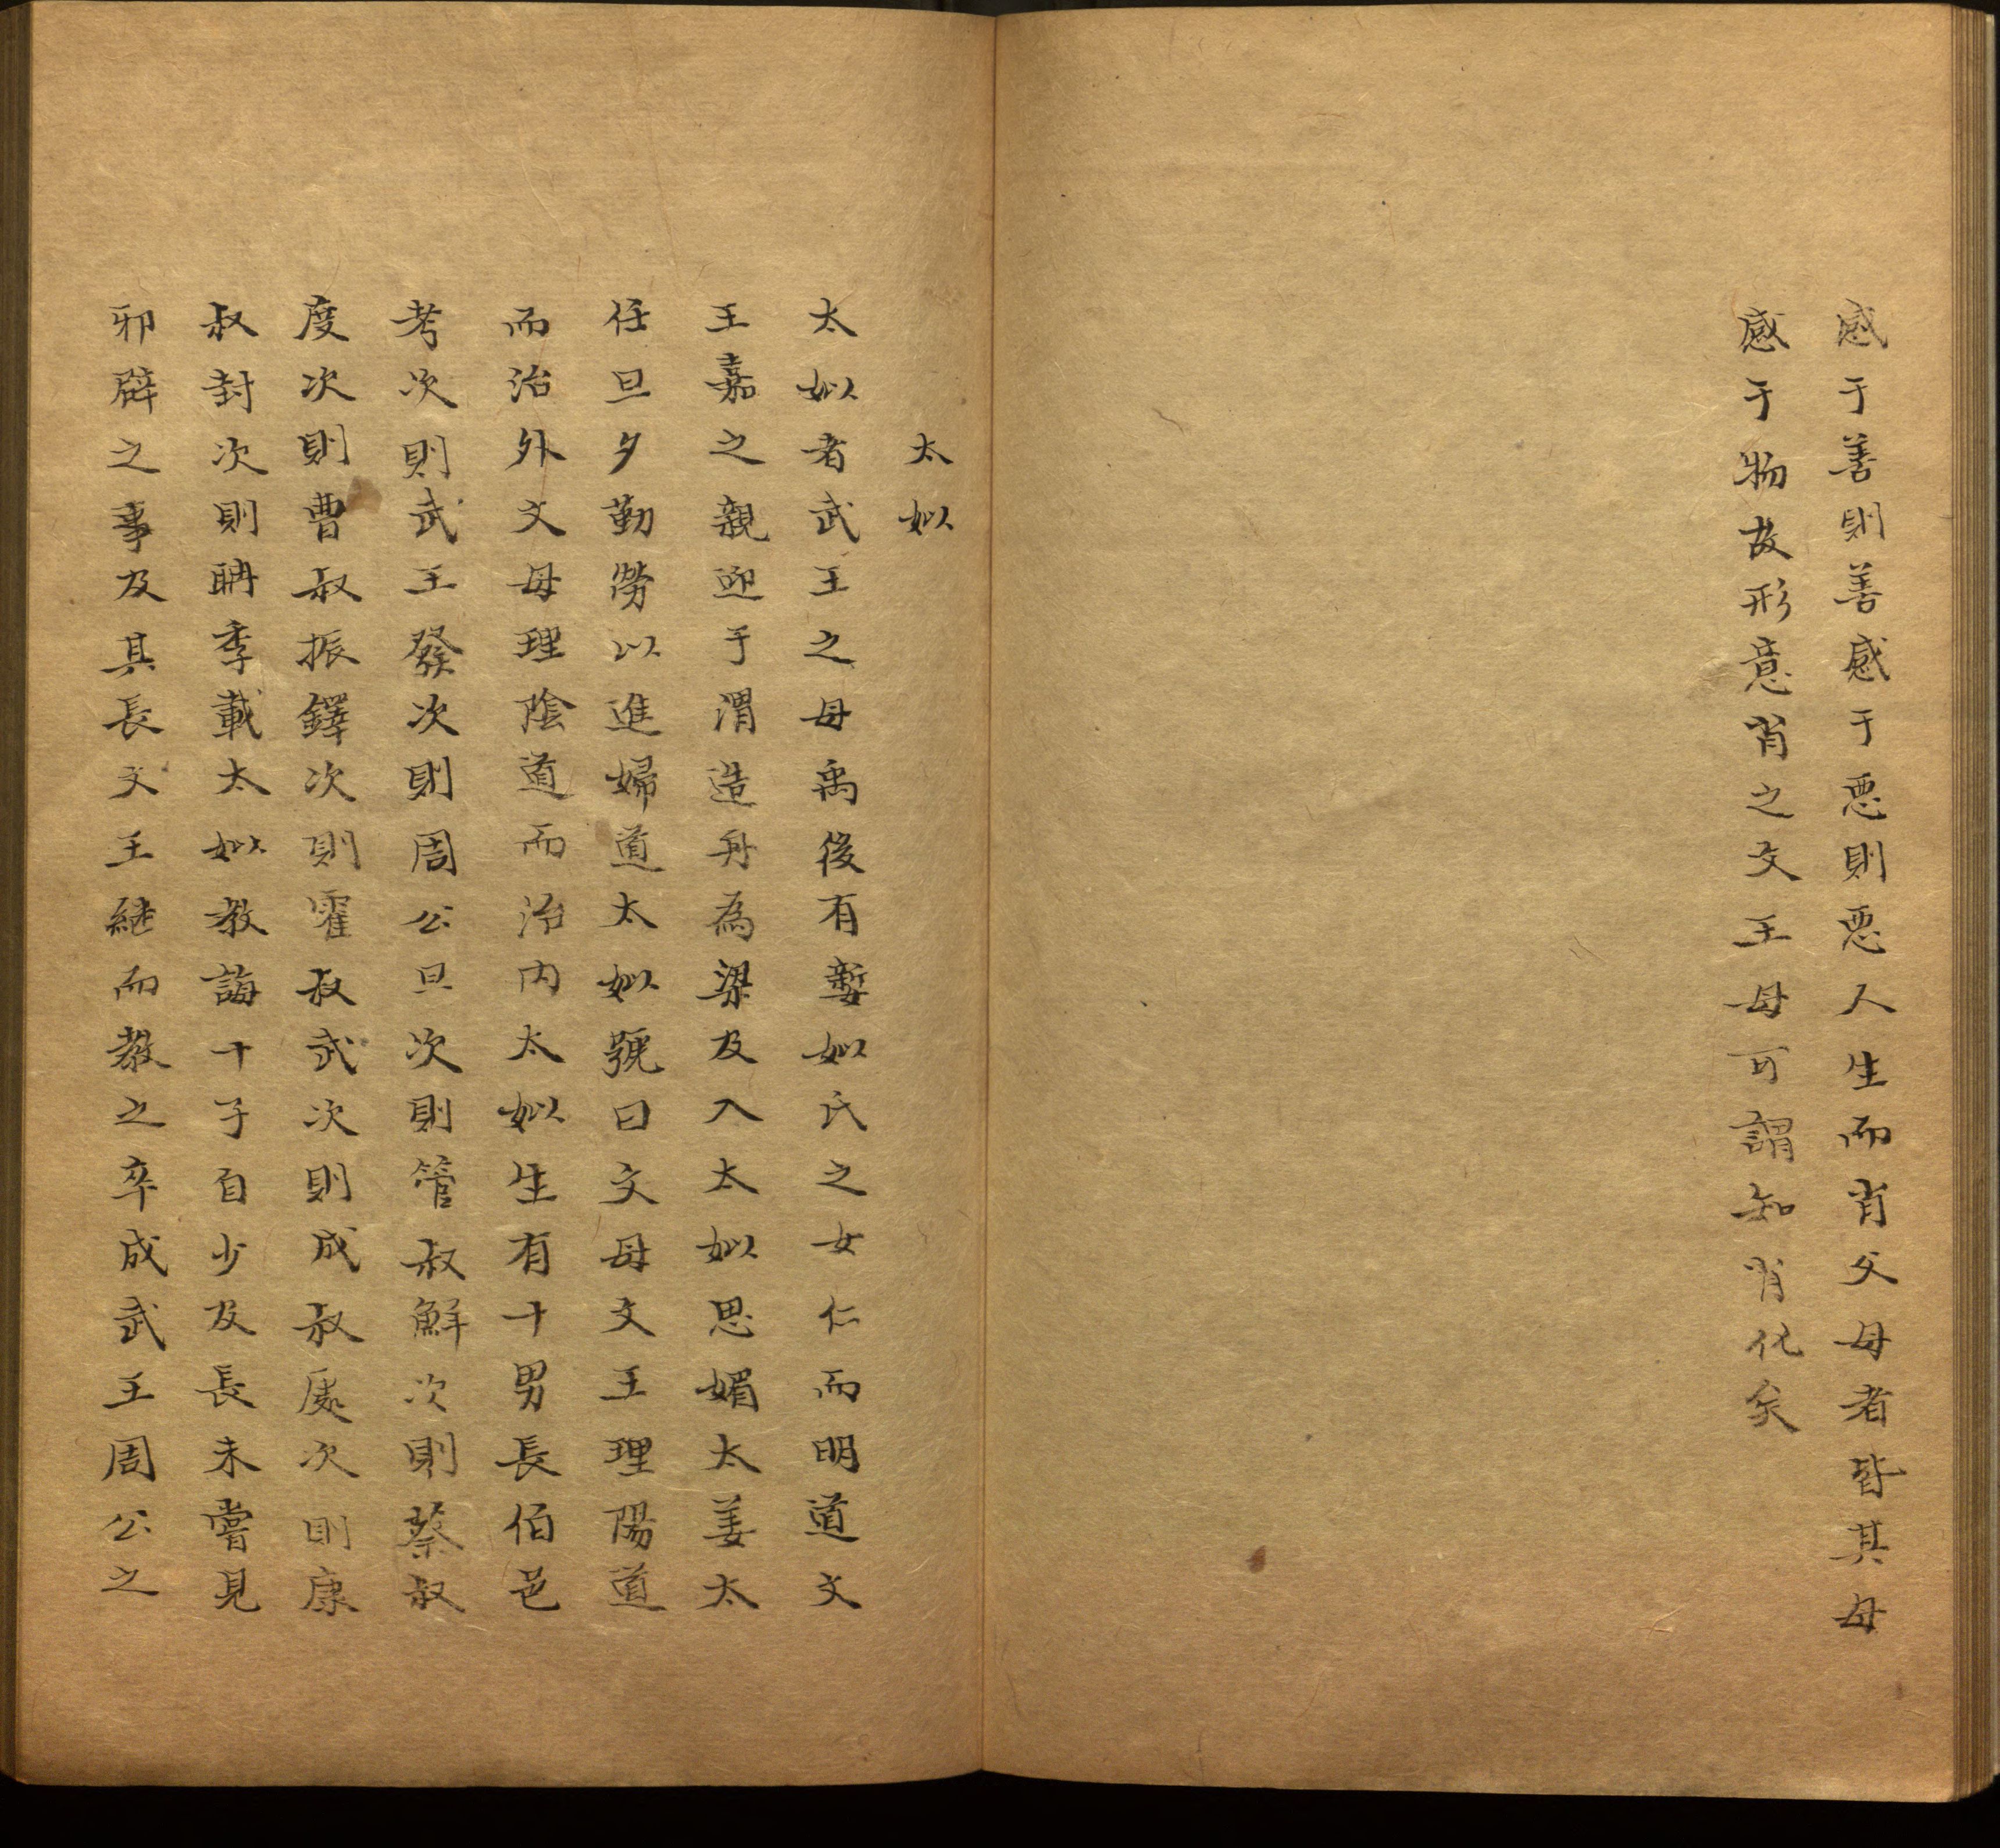 感于善則善感于惡則惡人生而肖父母者皆其母
感于物故形意肖之文王母可謂知肖化矣
太姒
太姒者武王之母禹後有㜪姒氏之女仁而明道文
王嘉之親迎于渭造舟為梁及入太姒思媚太姜太
任旦夕勤勞以進婦道太姒號曰文母文王理陽道
而治外文母理陰道而治內太姒生有十男長伯邑
考次則武王發次則周公旦次則管叔鮮次則蔡叔
度次則曹叔振鐸次則霍叔武次則成叔處次則康
叔封次則聃季載太姒教誨十子自少及長未嘗見
邪辟之事及其長文王継而教之卒成武王周公之